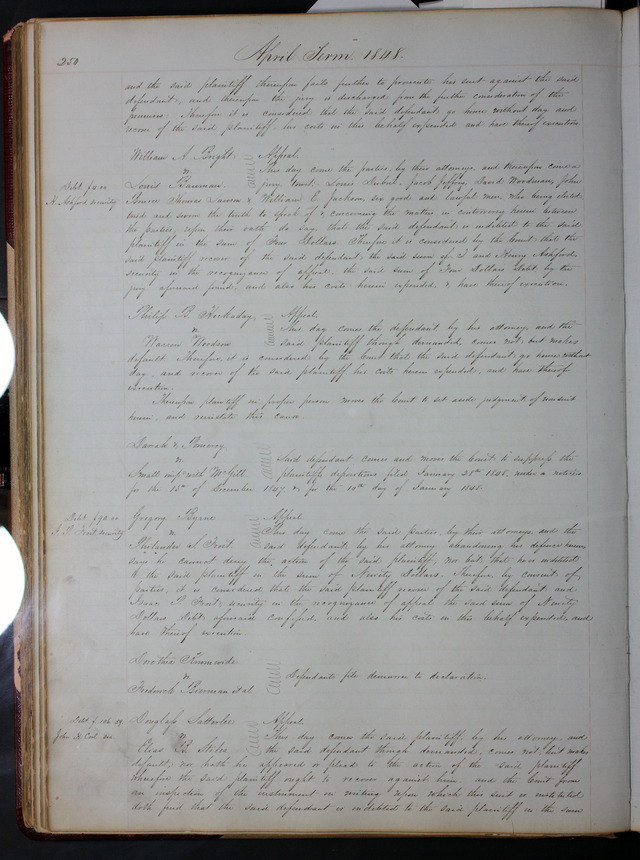 250
April Term 1848.
and the said plaintiff thereupon fails further to prosecute his suit against the said
defendant, and thereupon the jury is discharged from the further consideration of the
premises. Therefore it is considered that the said defendant go hence without day and
recover of the said plaintiff, his costs in this behalf expended and have thereof execution
William A Bright Appeal.
vs. This day come the parties, by their attorneys and thereupon come a
Debt. $4.00 Louis Bauman. jury towit: Louis Jacob David Woodman, John
H. Ashford, security Thomas & William E. Jackson, six good and lawful men, who being elected,
tried and sworn the truth to speak of & concerning the matter in controversy herein between
the parties, upon their oath do say that the said defendant is indebted to the said
plaintiff in the sum of Four Dollars. Therefore it is considered by the Court that the
said plaintiff recover of the said defendant, the said sum of and Henry Ashford,
security in the recognizance of appeal, the said sum of Four Dollars debt by the
jury aforesaid found, and also his costs herein expended, & have thereof execution.
Philip B. Hockaday Appeal.
vs. This day comes the defendant by his attorney, and the
Warren Woodson said plaintiff though demanded, comes not, but makes
default. Therefore it is considered by the Court that the said defendant go hence without
day, and recover of the said plaintiff his costs herein expended, and have thereof
execution.
Thereupon plaintiff in proper person moves the Court to set aside judgment of nonsuit
herein, and reinstate this cause.
Darrah & Pomeroy
vs. Said defendant comes and moves the Court to suppress the
Small imp. with McGill plaintiffs depositions filed January 28th 1848, under a notice
for the 15th of December 1847 & for the 10th day of January 1848.
Debt. $90.00 Gregory Byrne Appeal
I. P. Frost security vs. This day come the said parties, by their attorneys and the
Philander S. Frost. said defendant by his attorney abandoning his defence herein,
says he cannot deny the action of the said plaintiff, nor but that he is indebted
to the said plaintiff in the sum of Ninety Dollars. Therefore, by consent of
parties, it is considered that the said plaintiff recover of the said defendant and
Isaac P. Frost, security in the recognizance of appeal the said sum of Ninety
Dollars debt aforesaid confessed, and also his costs in this behalf expended, and
have thereof execution.
vs. Defendants file demurrer to declaration.
Frederick et al
Debt $ Douglass Satterlee Appeal
John H. vs. This day comes the said plaintiff, by his attorney, and
Elias B. Stiles the said defendant though demanded, comes not, but makes
default; nor hath he appeared or plead to the action of the said plaintiff
wherefore the said plaintiff ought to recover against him and the Court from
an inspection of the instrument in writing upon which this suit is instituted
doth find that the said defendant is indebted to the said plaintiff in the sum